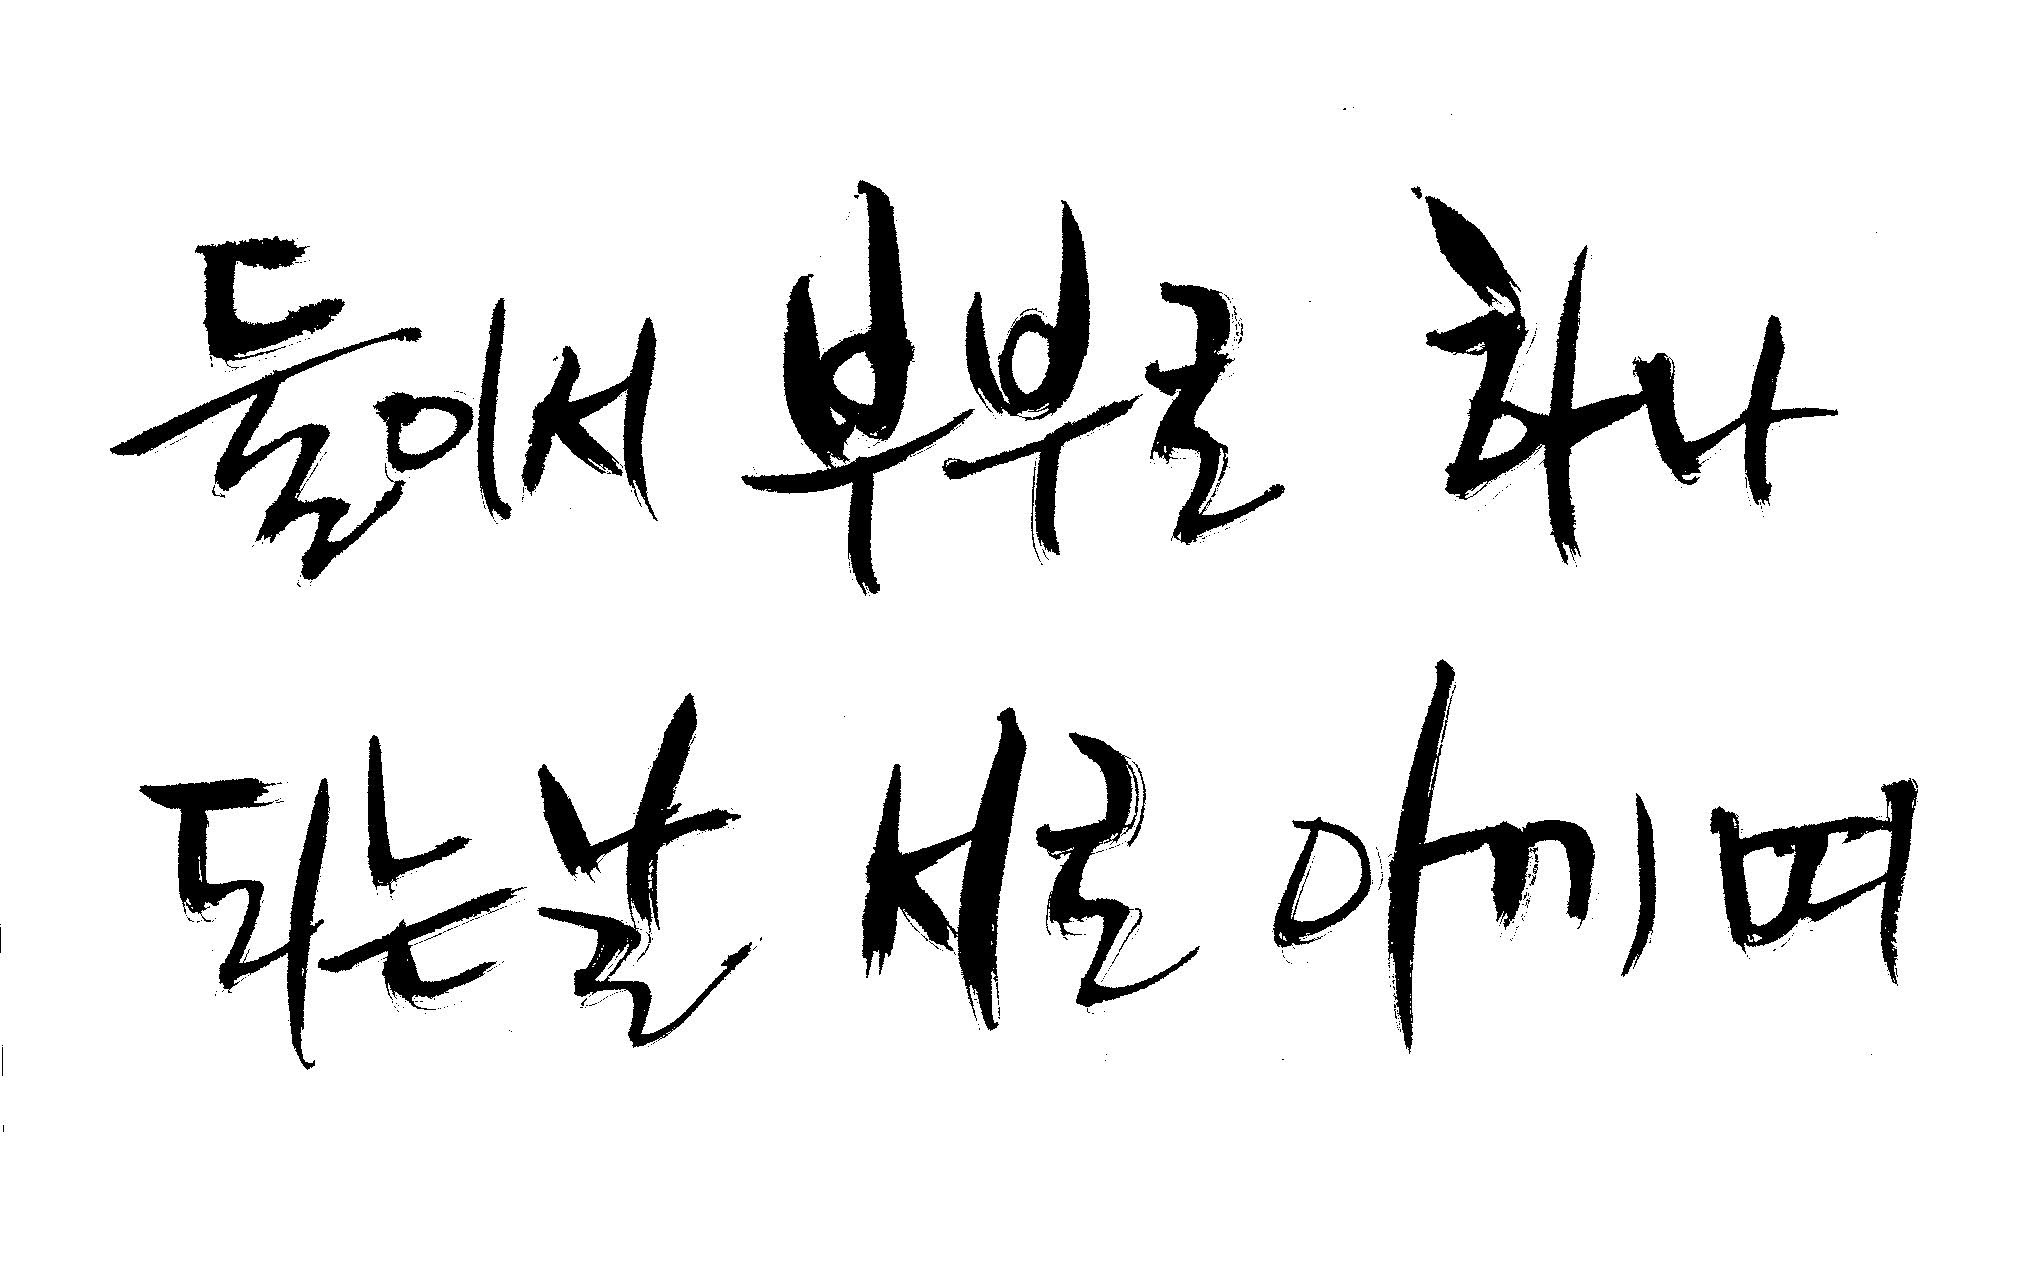 둘이서 부부로 하나
되는날 서로 아끼며